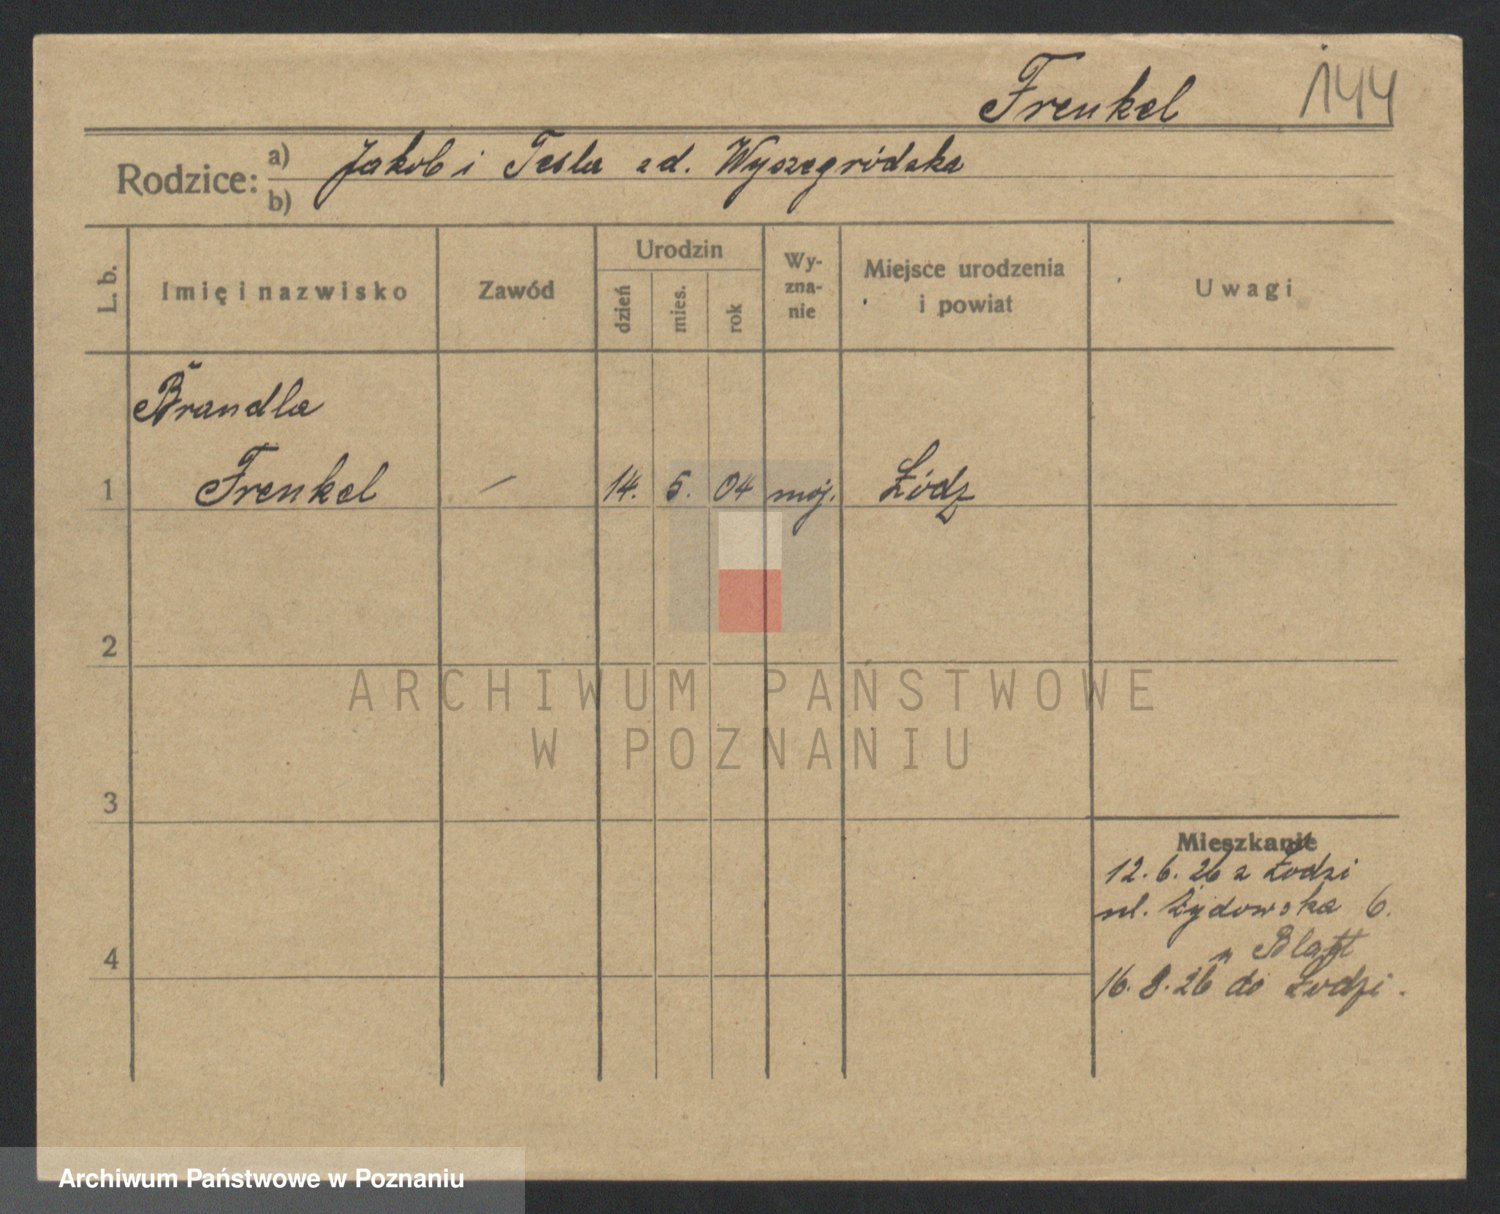 Frenkel 144
Rodzice: a) Jakob i Tesla zd. Wyszegródzka
b)
L. b. Imię i nazwisko Zawód Urodzin Wy-
zna-
nie Miejsce urodzenia
i powiat Uwagi
dzień mies. rok
Brandla
1 Frenkel — 14. 5. 04 mojż. Łódź
2
ARCHIWUM PAŃSTWOWE
W POZNANIU
3
Mieszkanie
12.6.26 z Łodzi
ul. Żydowska 6.
u Blatt
4
16.8.26 do Łodzi.
Archiwum Państwowe w Poznaniu